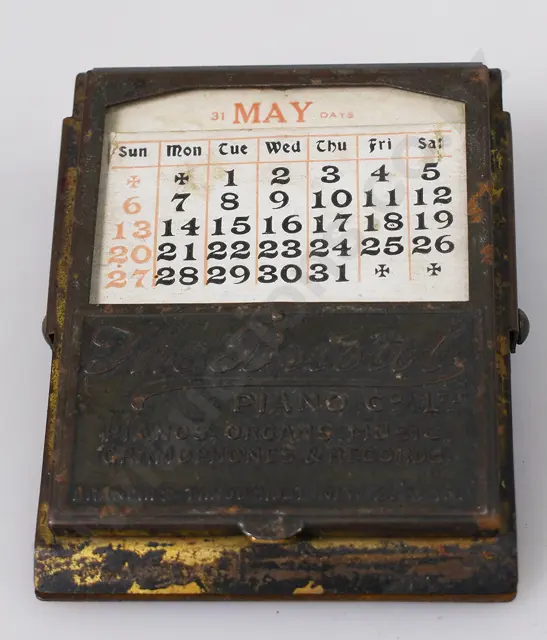 31 MAY DAYS
Sun Mon Tue Wed Thu Fri Sat
1 2 3 4 5
6 7 8 9 10 11 12
13 14 15 16 17 18 19
20 21 22 23 24 25 26
27 28 29 30 31
The
PIANO Co Ltd
PIANOS, ORGANS, MUSIC,
GRAMOPHONES & RECORDS.